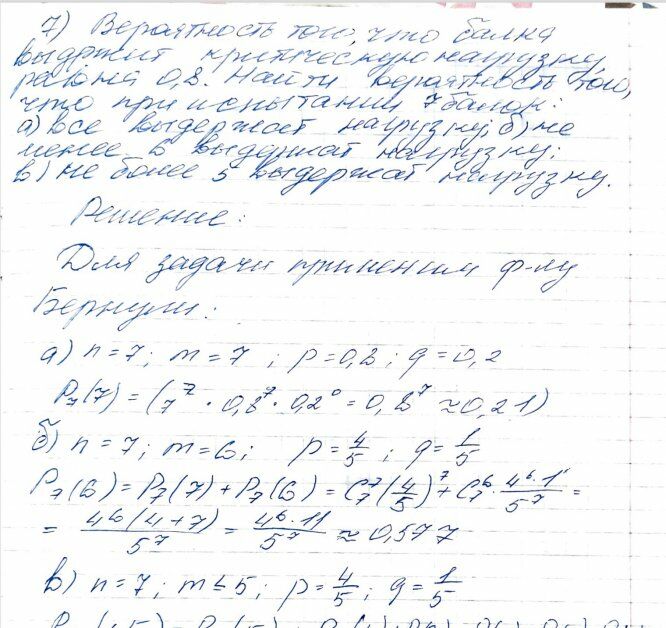 7) Вероятность того, что балка
выдержит критическую нагрузку,
равна 0,8. Найти вероятность того,
что при испытании 7 балок:
а) все выдержат нагрузку; б) не
менее 6 выдержат нагрузку;
в) не более 5 выдержат нагрузку.
Решение:
Для задачи применим ф-лу
Бернулли:
а) n=7; m=7; p=0,8; q=0,2
P₇(7) = (₇⁷ · 0,8⁷ · 0,2⁰ = 0,8⁷ ≈ 0,21)
б) n=7; m=6; p=4/5; q=1/5
P₇(6) = P₇(7) + P₇(6) = C₇⁷(4/5)⁷ + C₇⁶ · 4⁶·1¹/5⁷ =
= 4⁶(4+7)/5⁷ = 4⁶·11/5⁷ ≈ 0,577
в) n=7; m≤5; p=4/5; q=1/5